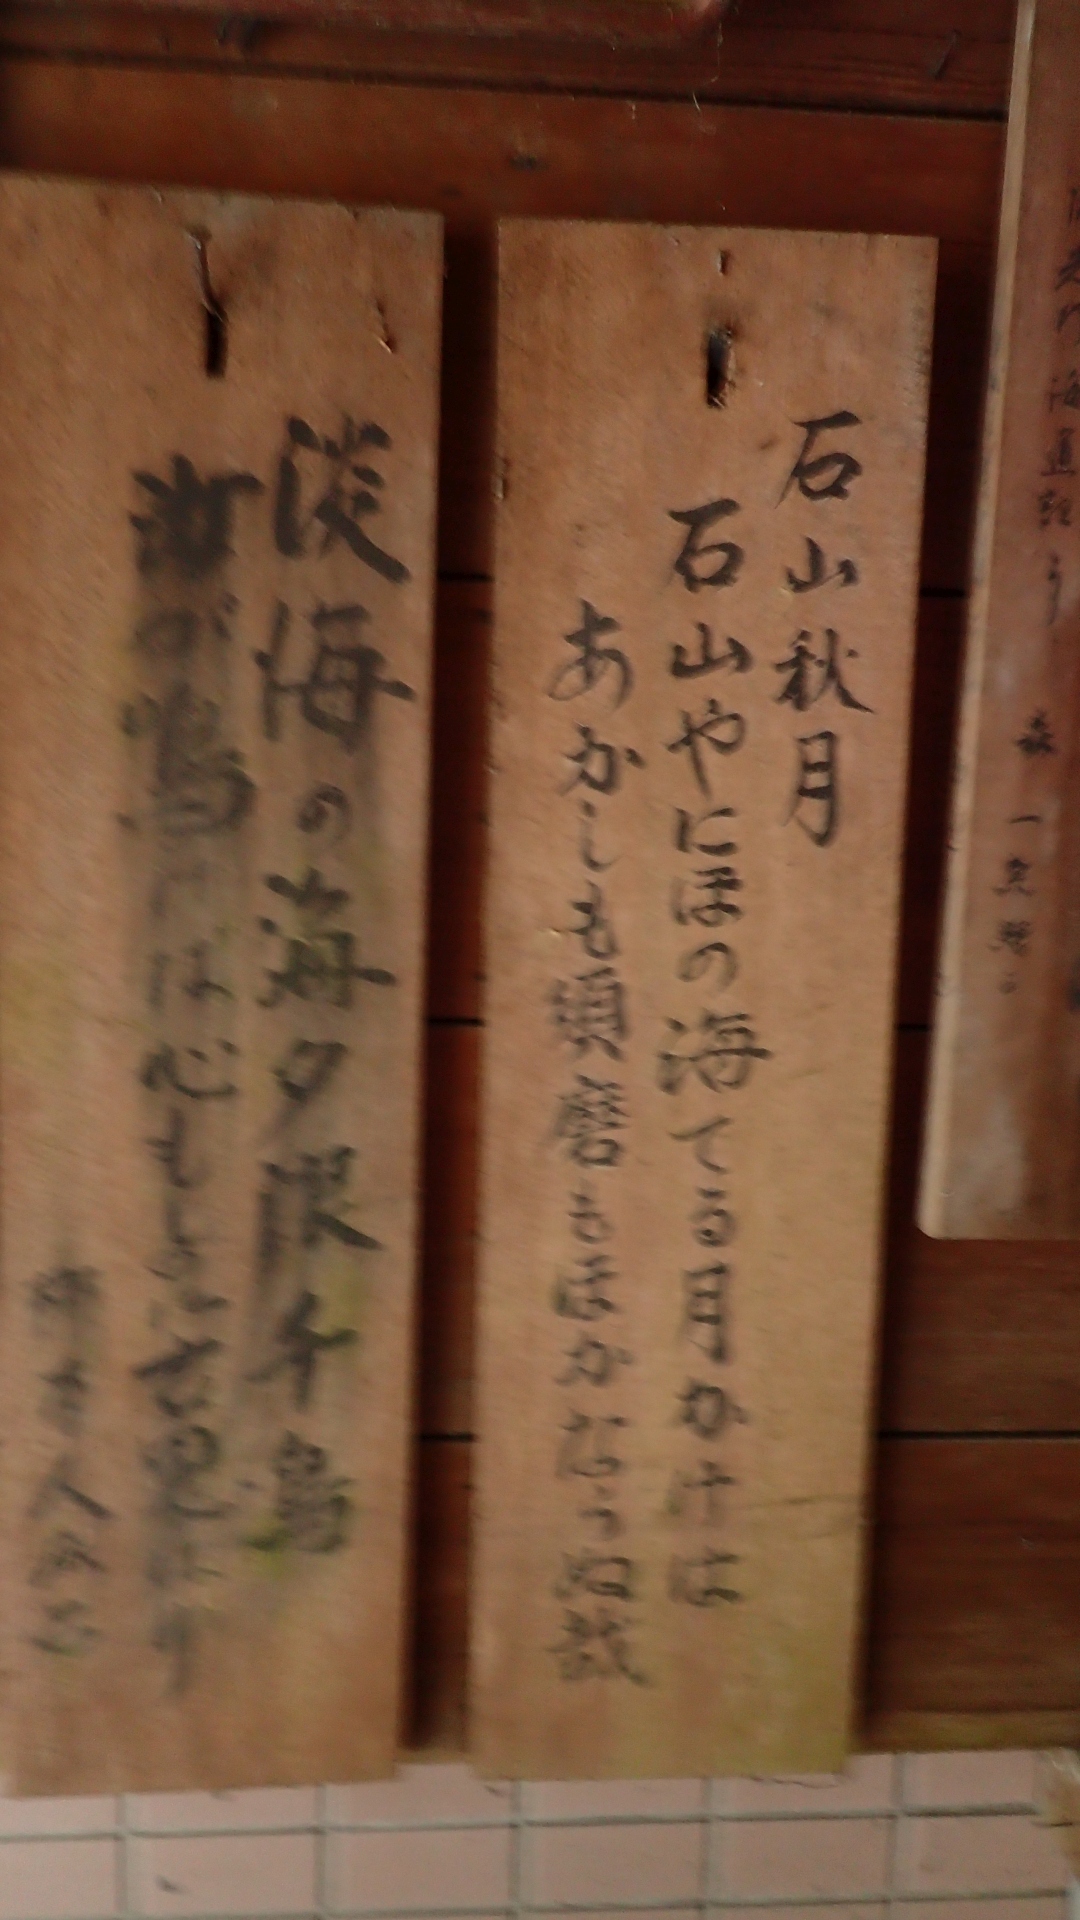 石山秋月
石山やにほの海てる月かけは
あかしも須磨もほかならぬ哉
淡海の海夕浪千鳥
汝が鳴けば心もしのに古思ほゆ
柿本人麻呂